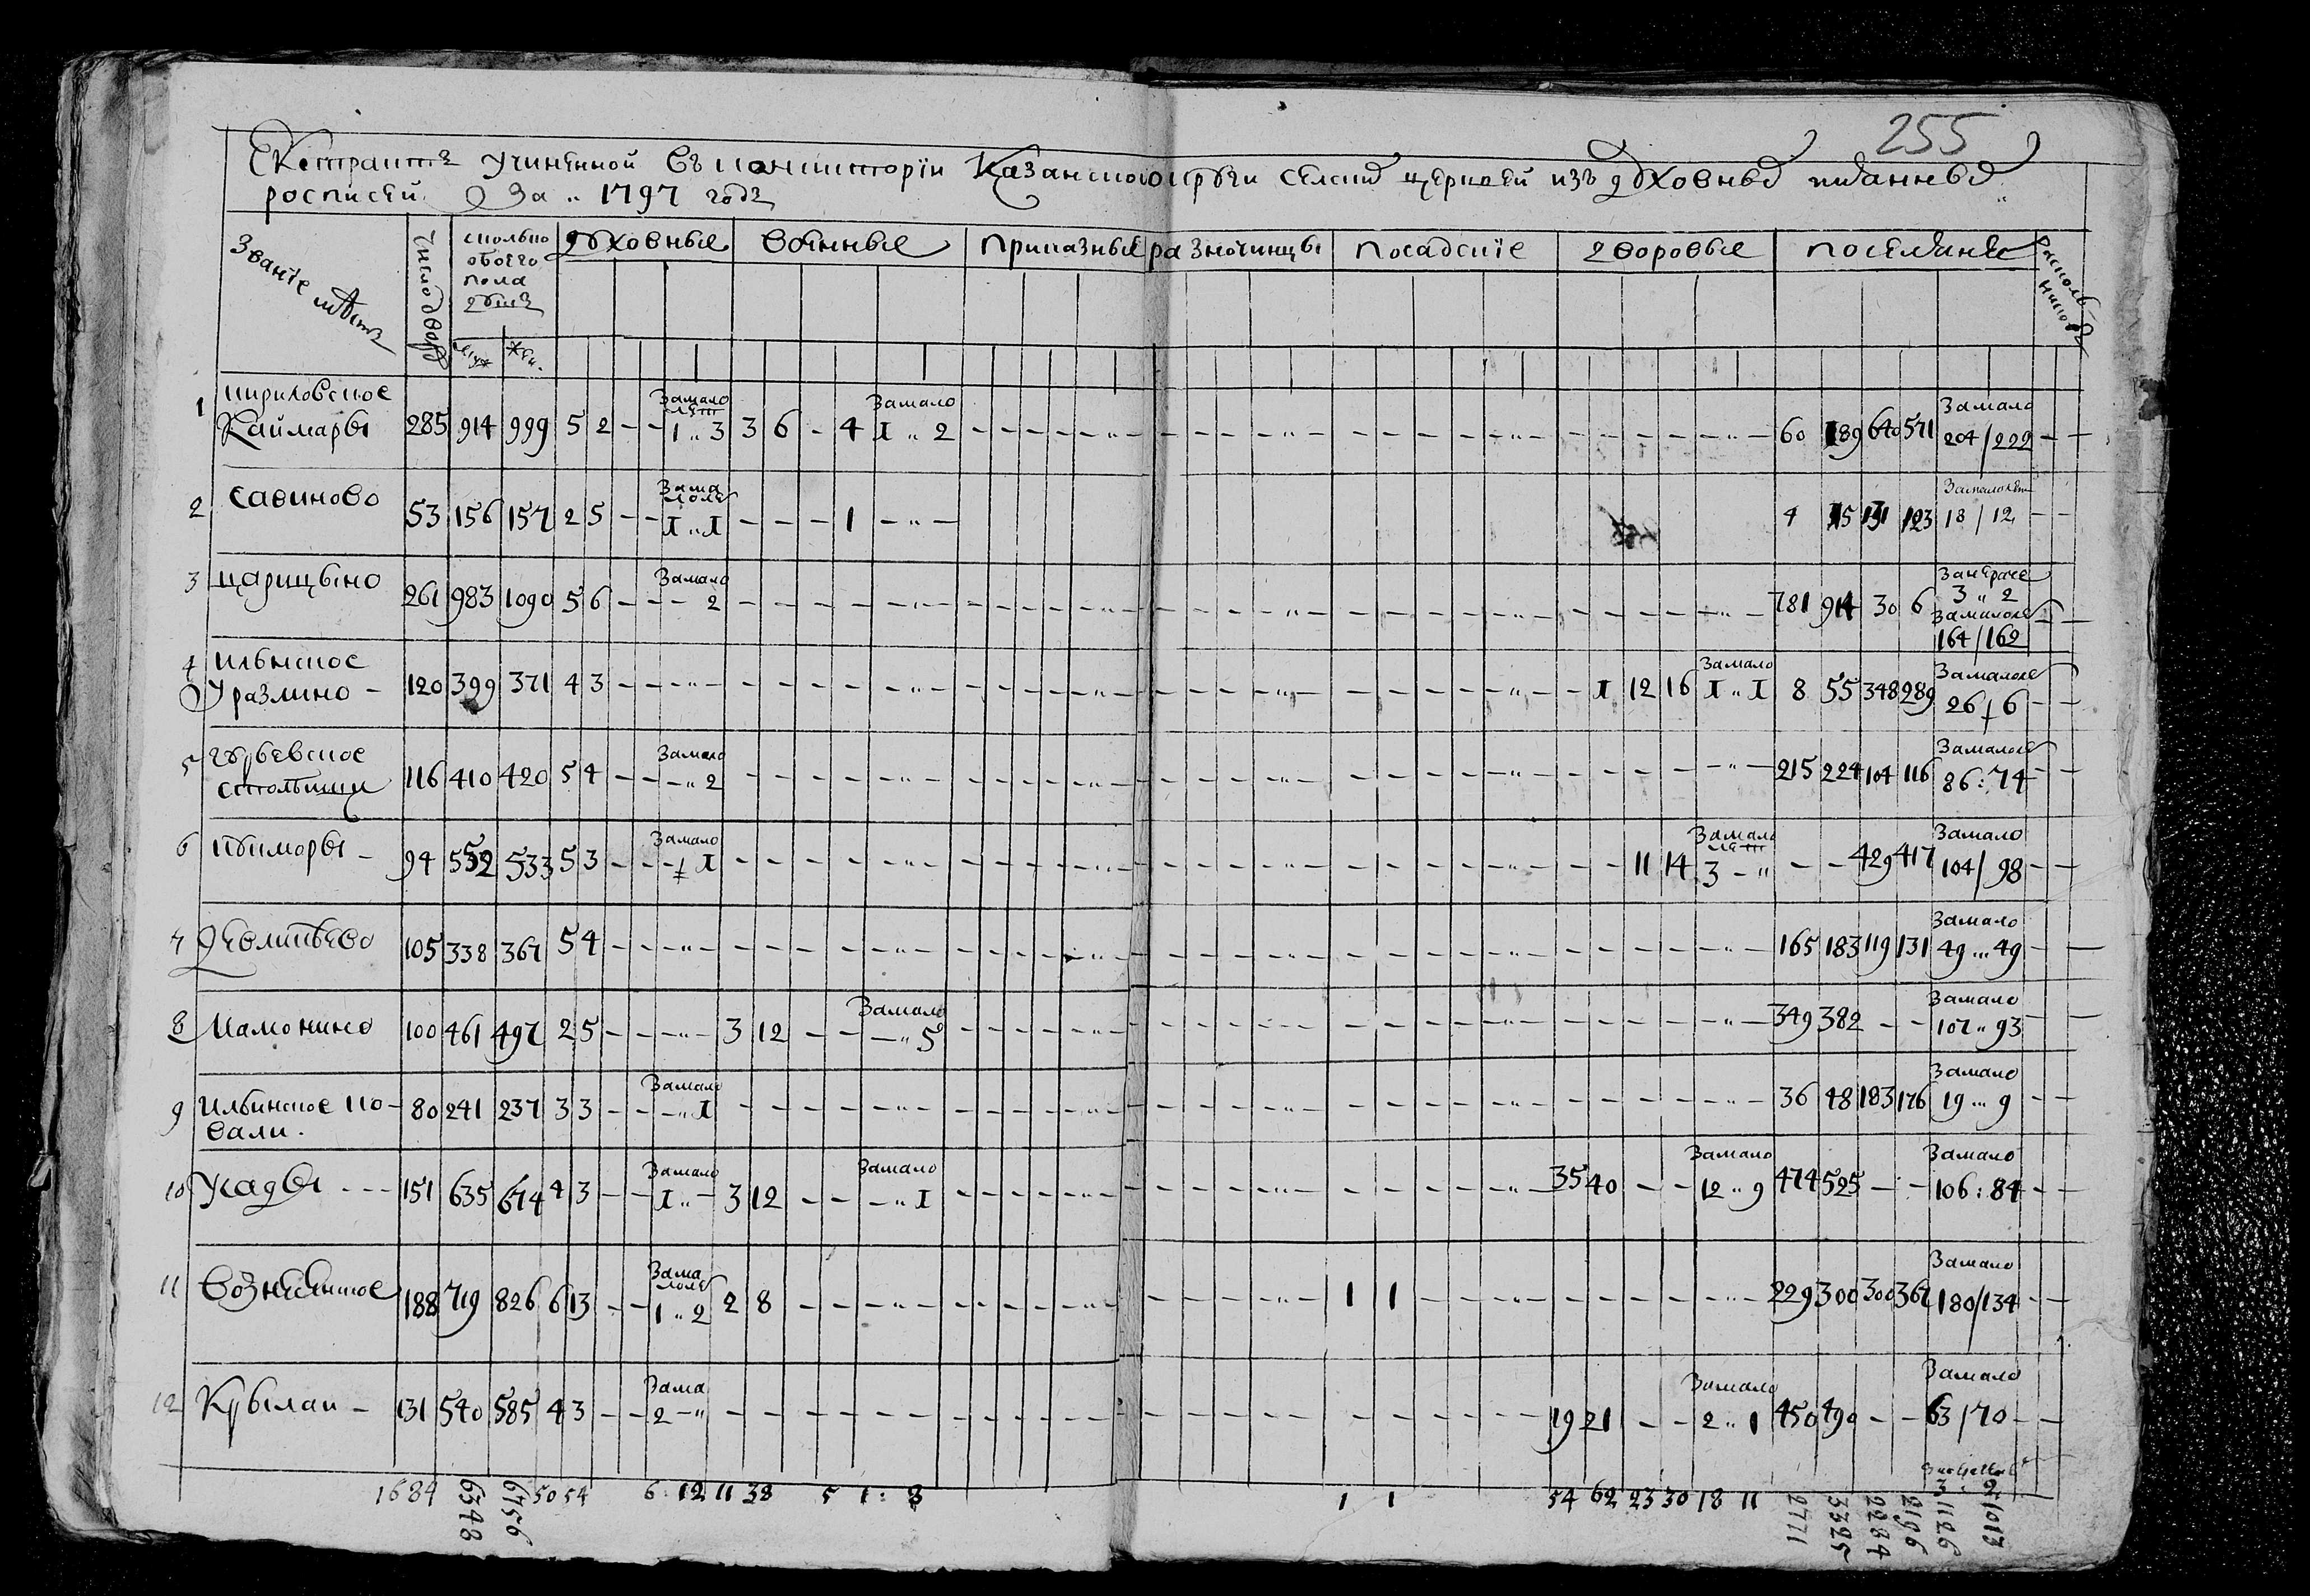 255
Екстрактъ учиненной въ консисторіи Казанской округи селскихъ церквей изъ духовныхъ
росписей За „ 1797 годъ
Званіе мѣстъ число дворовъ сколько обоего пола душъ духовные военные приказные разночинцы посадскіе дворовые поселяне раскольниковъ
муж жен.
1 Кириловское Замало лѣт Замало Замало
Каймары 285 914 999 5 2 - - 1 „ 3 3 6 - 4 1 „ 2 60 189 640 571 204/229 - -
2 Савиново Зама лолѣ Замалолѣт
53 156 157 2 5 - - 1 „ 1 - - - 1 - „ - 4 15 131 123 18/12 - -
3 Царицыно Замало
261 983 1090 5 6 - - - 2 781 914 30 6 3 „ 2
Замалолѣ 164/162
4 Ильинское Замало Замалолѣ
Уразлино - 120 399 371 4 3 - - - „ - 1 12 16 1 „ 1 8 55 348 289 26/6 - -
5 Гурьевское Замало Замалолѣ
Столбищи 116 410 420 5 4 - - - „ 2 215 224 104 116 86:74 - -
6 Киморы - Замало Замало лѣт Замало
94 552 533 5 3 - - - 1 11 14 3 - „ - - 429 417 104/98 - -
7 Девликѣево Замало
105 338 367 5 4 - - - „ - 165 183 119 131 49 ... 49 - -
8 Мамонино Замало Замало
100 461 497 2 5 - - - „ - 3 12 - - - „ 5 349 382 - - 107 „ 93
9 Ильинское Ко- Замало Замало
вали. 80 241 237 3 3 - - - „ 1 36 48 183 176 19 ... 9 - -
10 Усады --- Замало Замало Замало Замало
151 635 674 4 3 - - 1 „ - 3 12 - - - „ 1 35 40 - - 12 „ 9 474 525 - - 106:84 - -
11 Вознесенское Зама лолѣ Замало
188 719 826 6 13 - - 1 „ 2 2 8 - - - „ - 1 1 229 300 300 367 180/134 - -
12 Крылаи - Зама Замало Замало
131 540 585 4 3 - - 2 - „ 19 21 - - 2 „ 1 450 490 - - 63/70 - -
1684 6348 6756 50 54 6:12 11 38 5 1:8 1 1 54 62 23 30 18 11 2771 3325 2284 2196 3 „ 2 1126/1013